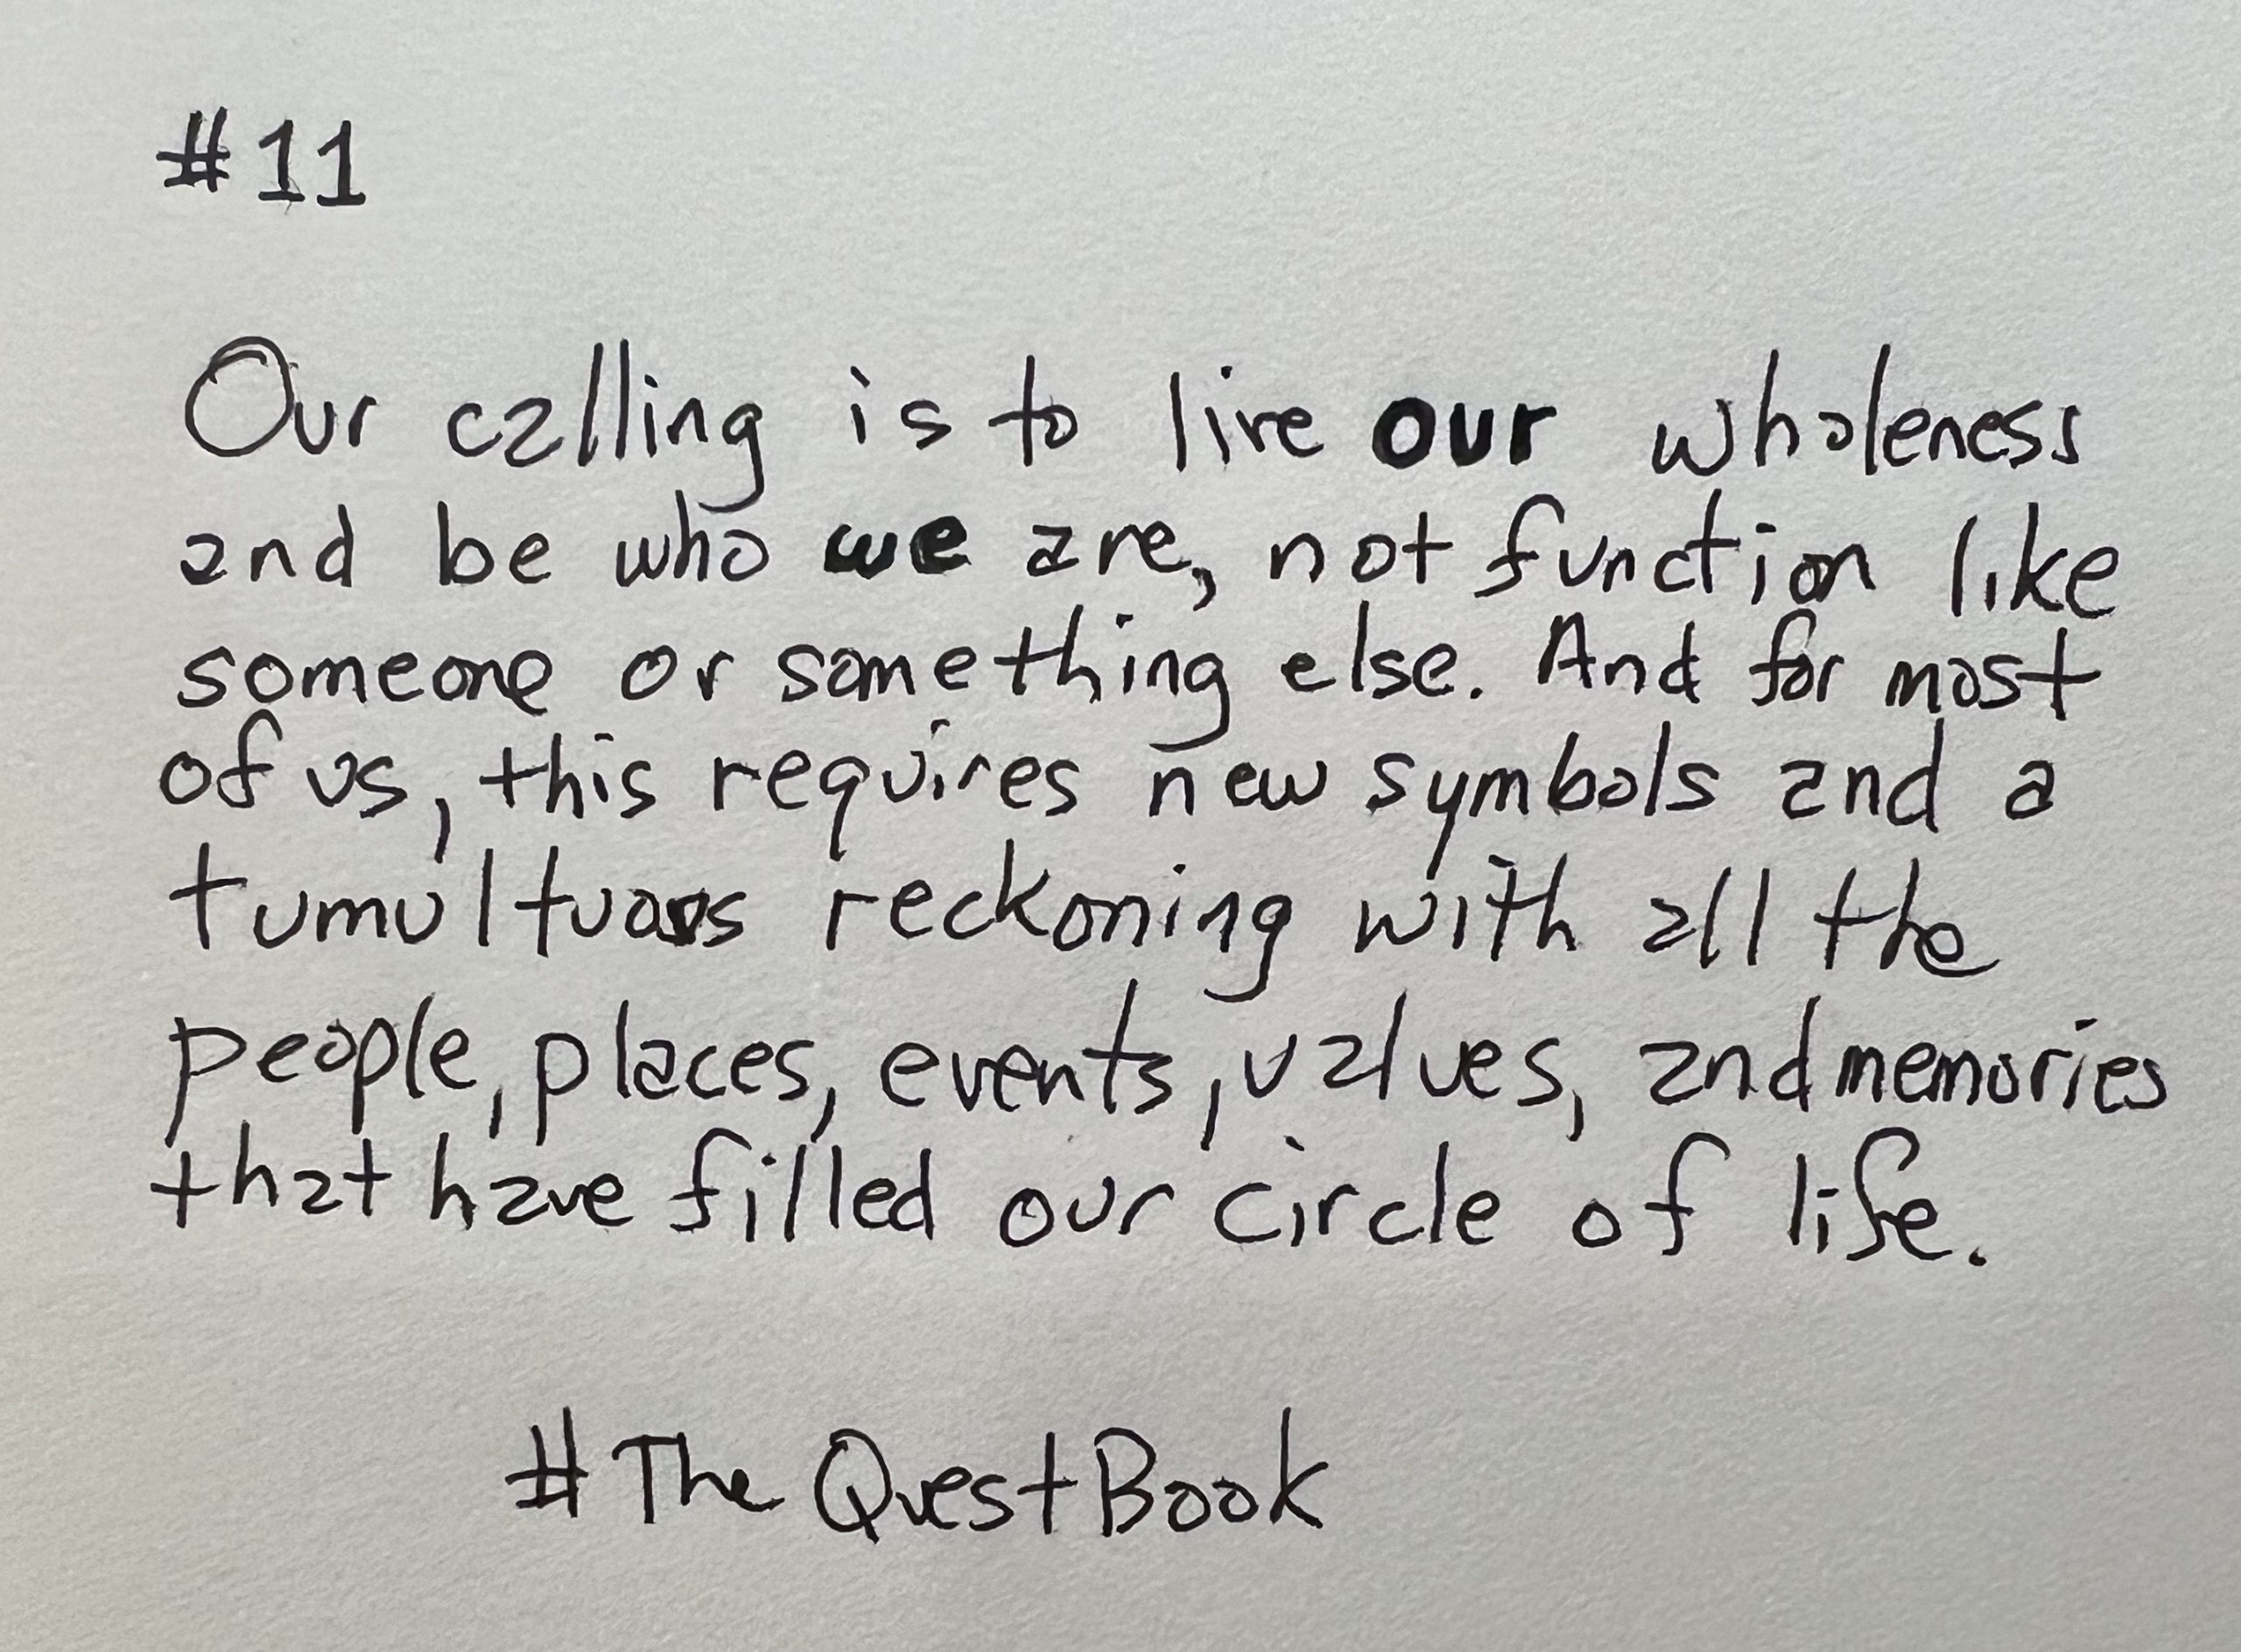 #11
Our calling is to live our wholeness
and be who we are, not function like
someone or something else. And for most
of us, this requires new symbols and a
tumultuous reckoning with all the
people, places, events, values, and memories
that have filled our circle of life.
#The QuestBook